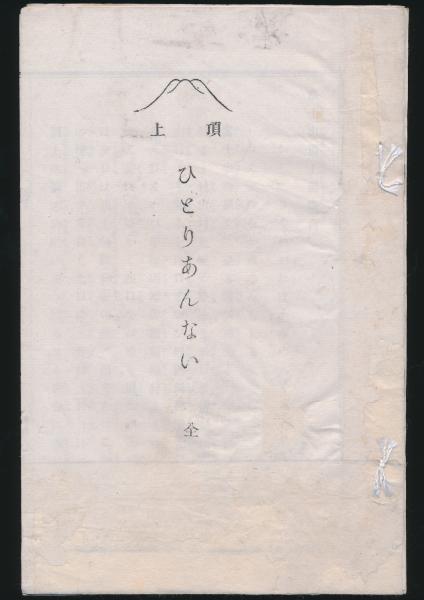 頂上
ひとりあんない 全